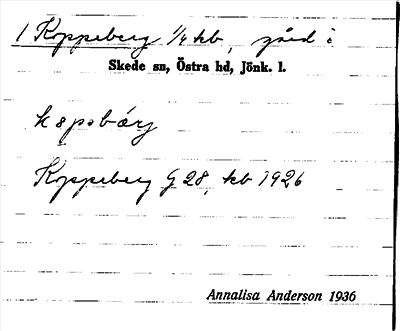 1 Koppeberg 1/4 kb, gård i
Skede sn, Östra hd, Jönk. l.
Koppeberg G 28, kb 1926
Annalisa Anderson 1936